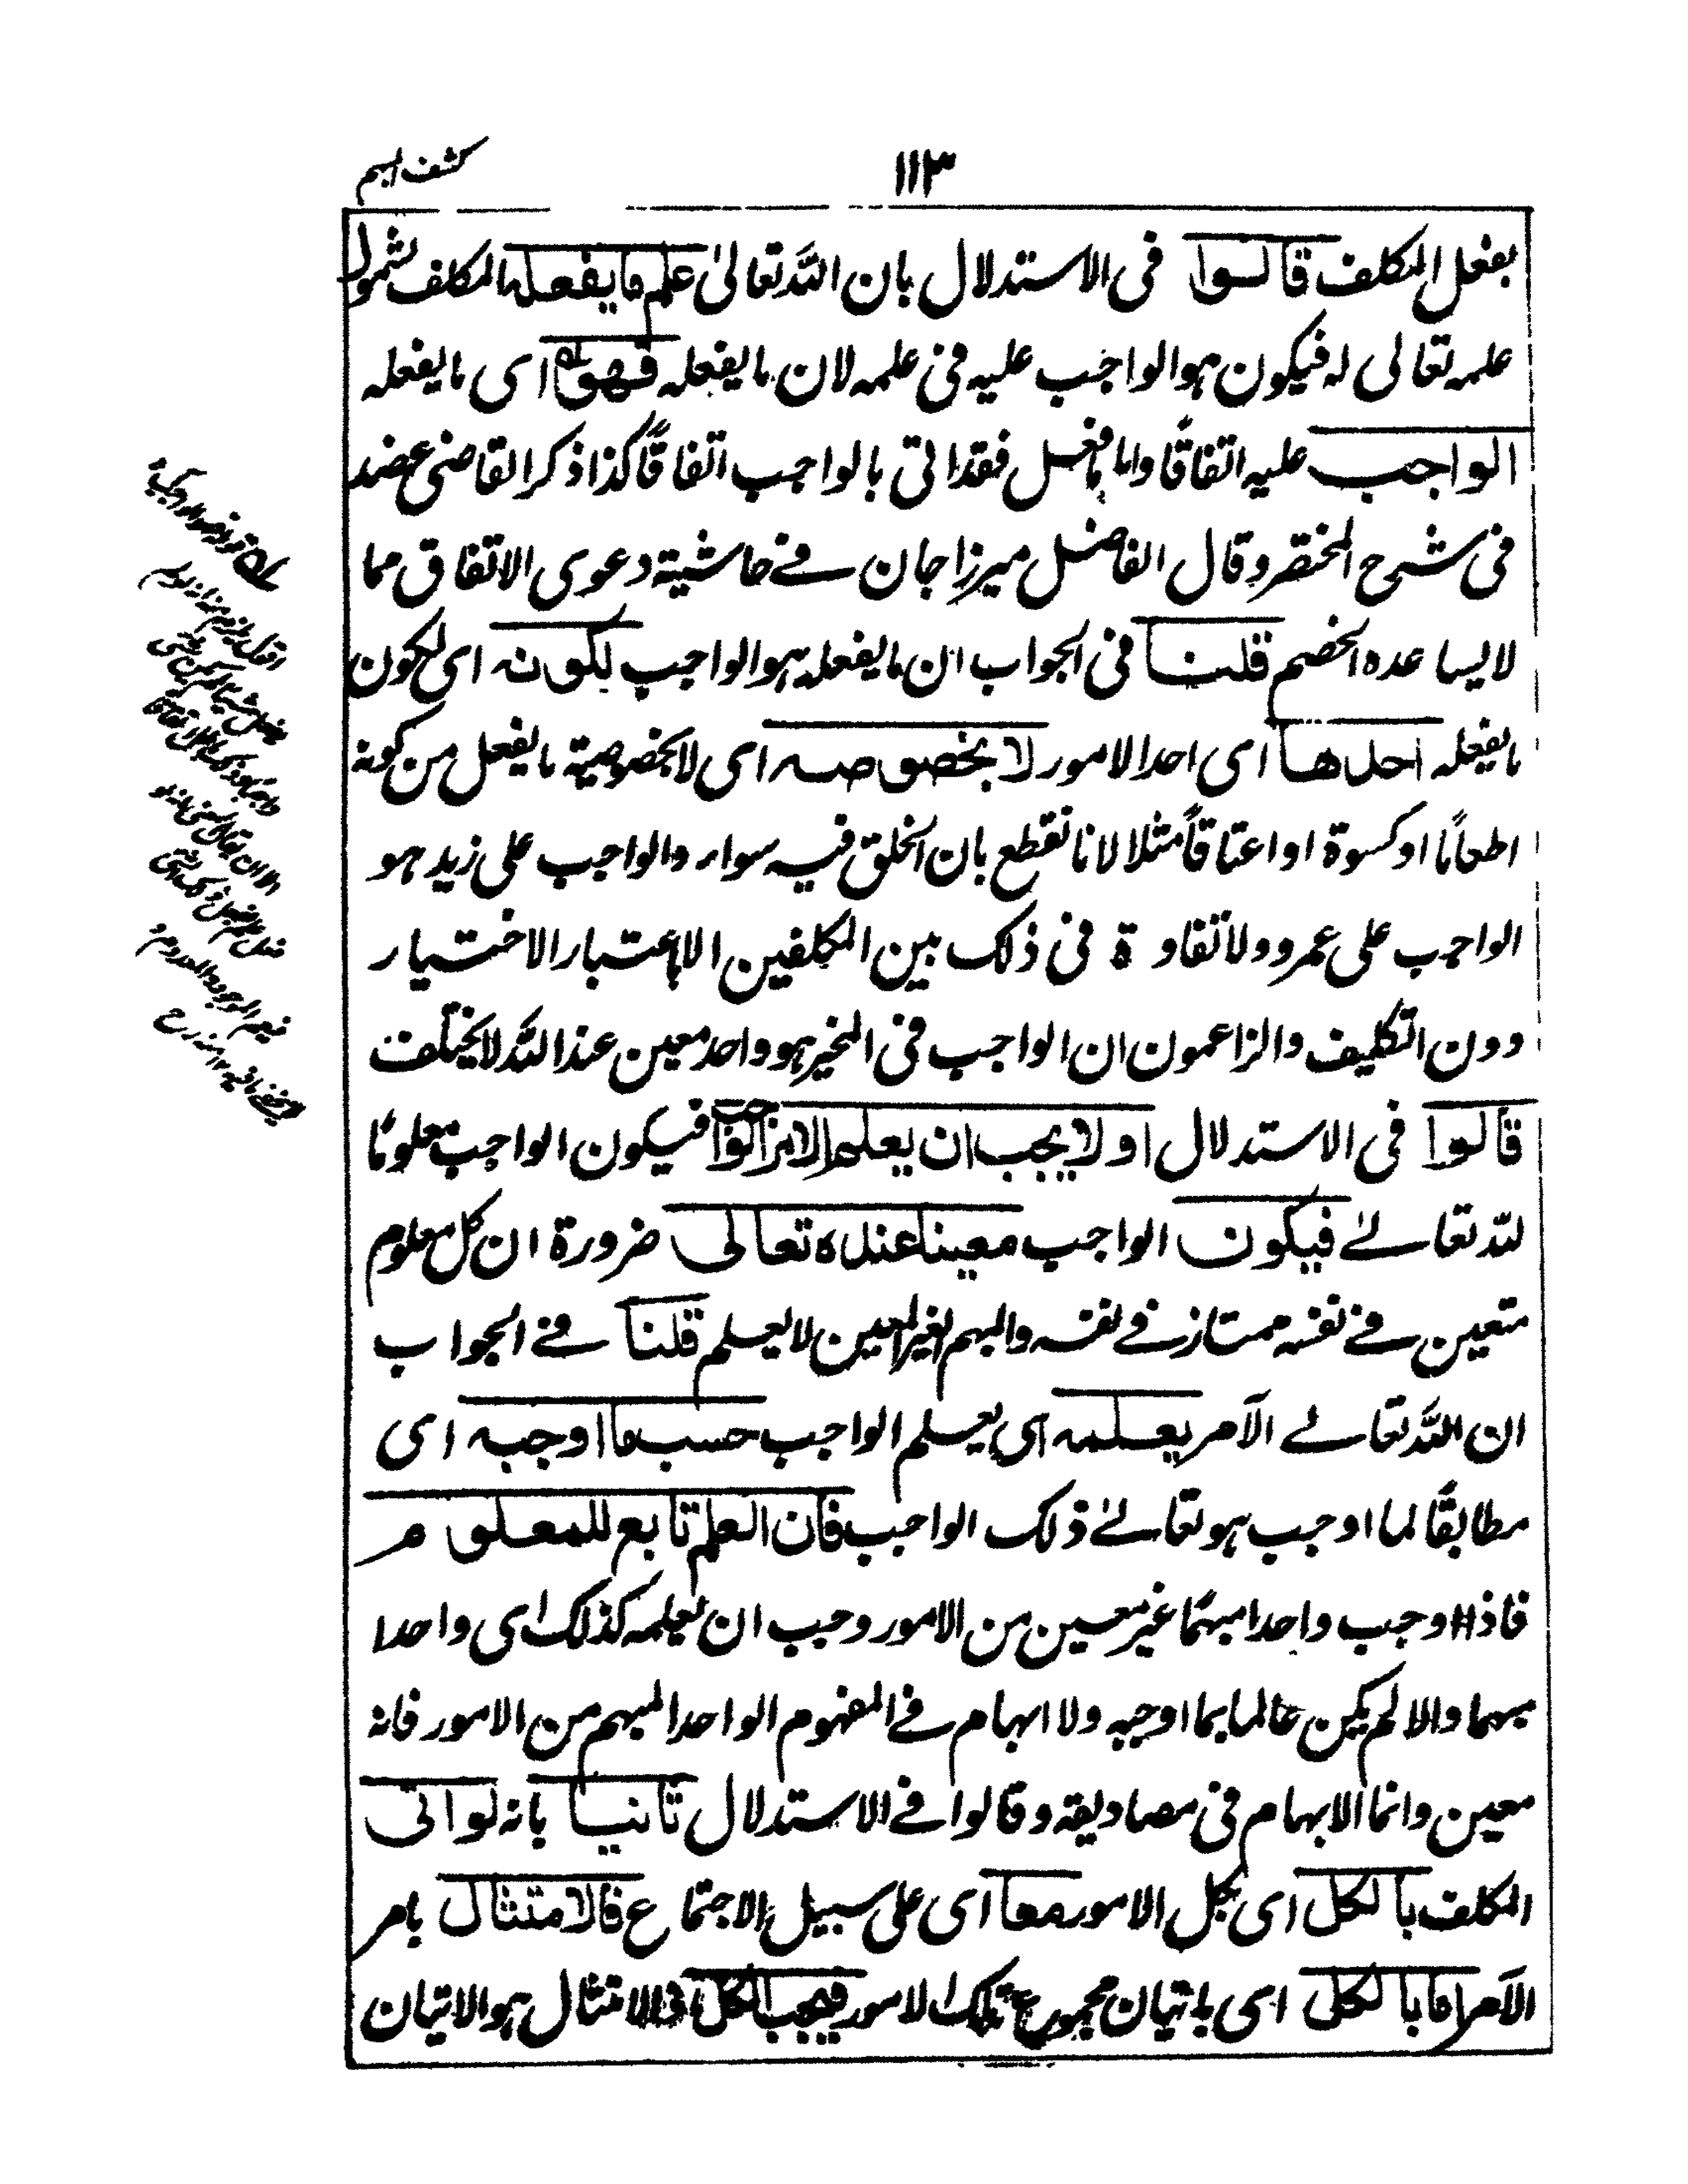 ١١٣
كشف المبهم
بفعل المكلف قالوا فى الاستدلال بان الله تعالىٰ علم ما يفعله المكلف لشمول
علمه تعالى له فيكون هو الواجب عليه فى علمه لان ما يفعله فهو اى ما يفعله
الواجب عليه اتفاقًا واما بافعل فقد اتى بالواجب اتفاقًا كذا ذكر القاضى عضد
فى شرح المختصر وقال الفاضل ميرزا جان فى حاشية دعوى الاتفاق مما
لا يساعده الخصم قلنا فى الجواب ان ما يفعله هو الواجب لكونه اى لكون
ما يفعله احدها اى احد الامور لا بخصوصه اى لا بخصوصية ما يفعل من كونه
اطعامًا او كسوة او اعتاقًا مثلا لانا نقطع بان الخلق فيه سواء والواجب على زيد هو
الواجب على عمرو ولا تفاوة فى ذلك بين المكلفين الا باعتبار الاختيار
دون التكليف والزاعمون ان الواجب فى المخير هو واحد معين عند الله لا يختلف
قالوا فى الاستدلال اولا يجب ان يعلم الامر الواجب فيكون الواجب معلومًا
لله تعالى فيكون الواجب معينا عنده تعالى ضرورة ان كل معلوم
متعين فى نفسه ممتاز فى نفسه والمبهم الغير المعين لا يعلم قلنا فى الجواب
ان الله تعالى الآمر يعلمه اى يعلم الواجب حسب ما اوجبه اى
مطابقًا لما اوجب هو تعالى ذلك الواجب فان العلم تابع للمعلوم
فاذا اوجب واحدا مبهمًا غير معين من الامور وجب ان يعلمه كذلك اى واحدا
مبهما والا لم يكن عالما بما اوجبه ولا ابهام فى المفهوم الواحد المبهم من الامور فانه
معين وانما الابهام فى مصاديقه وقالوا فى الاستدلال ثانيا بانه لو اتى
المكلف بالكل اى بكل الامور معا اى على سبيل الاجتماع فالامتثال بامر
الآمر اما بالكل اى باتيان مجموع تلك الامور فيجب الكل اذ الامتثال هو الاتيان